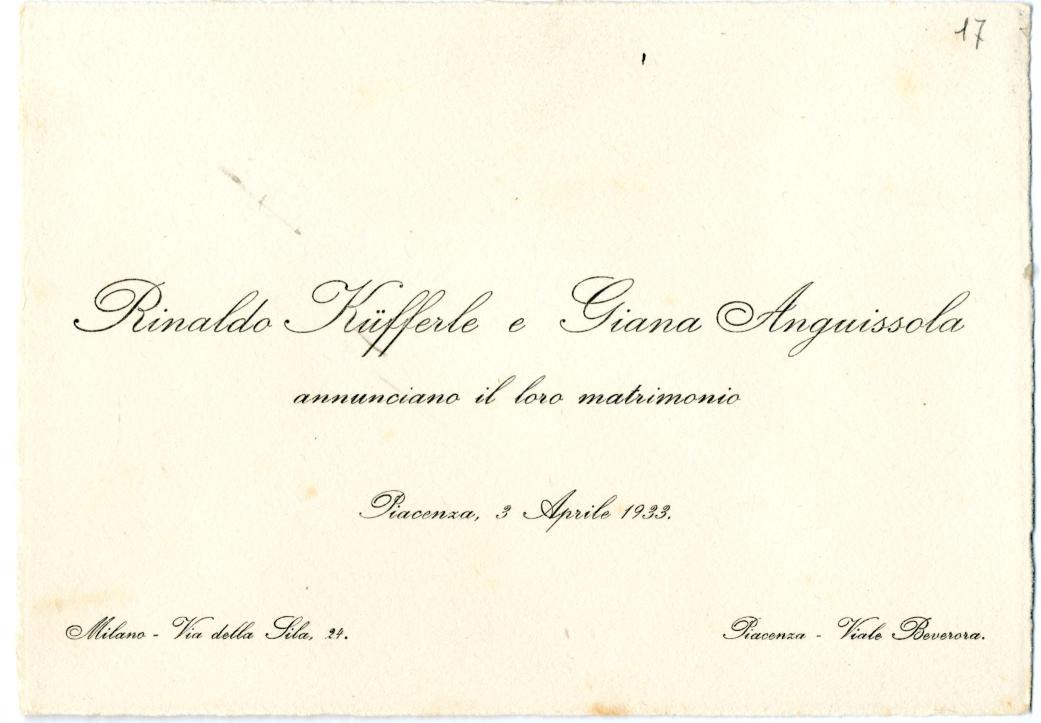 17
Rinaldo Küfferle e Giana Anguissola
annunciano il loro matrimonio
Piacenza, 3 Aprile 1933.
Milano - Via della Sila, 24.
Piacenza - Viale Beverora.